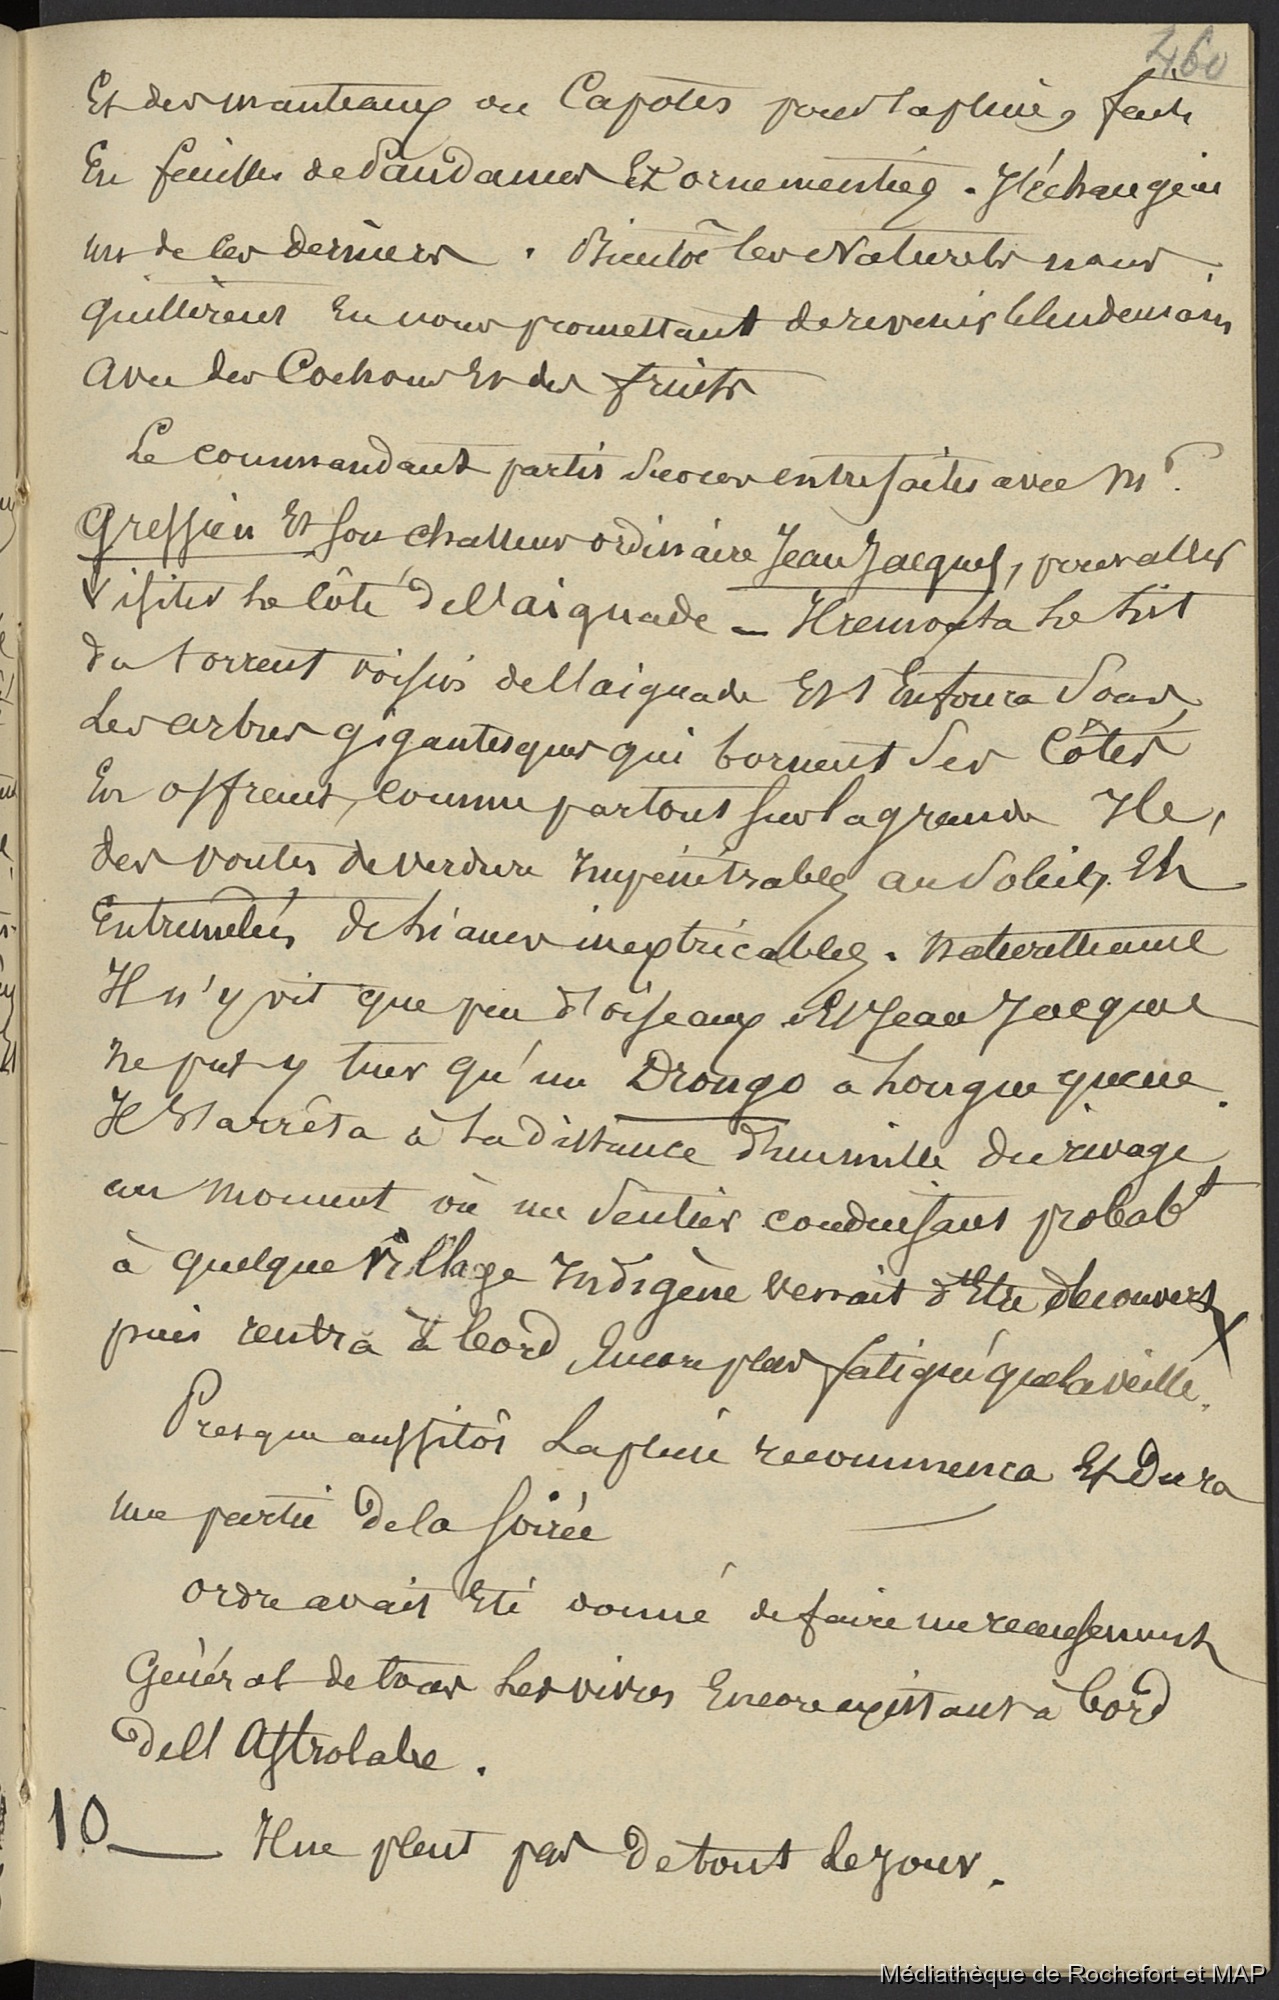 460
Et des manteaux ou Capotes pour la pluie, faits
En feuilles de Pandanus Et ornementées. J'échangeai
un de ces derniers. Bientôt les Naturels nous
quittèrent En nous promettant de revenir le lendemain
avec des Cochons Et des fruits
Le commandant partit sur ces entrefaites avec Mr.
Gressien Et son chasseur ordinaire Jean Jacques, pour aller
Visiter le côté de l'aiguade _ Il remonta le lit
du torrent voisin de l'aiguade Et s'Enfonça Sous
Les arbres gigantesques qui bornent Ses Côtés
En offrant, comme partout sur la grande Ile,
des voutes de verdure Impénétrables au Soleil, Et
Entremêlées de lianes inextricables. Naturellement
Il n'y vit que peu d'oiseaux Et Jean Jacques
ne put y tuer qu'un Drongo à longue queue.
Il s'arrêta à la distance d'un mille du rivage
au moment où un Sentier conduisant probabt
à quelque Village Indigène venait d'Etre découvert
puis rentra à bord Encore plus fatigué que la veille.
Presque aussitôt La pluie recommença Et Dura
une partie De la Soirée
ordre avait Eté donné de faire un recensement
Général de tous les vivres Encore existant à bord
De l'Astrolabe.
10 _ Il ne pleut pas De tout le jour.
Médiathèque de Rochefort et MAP